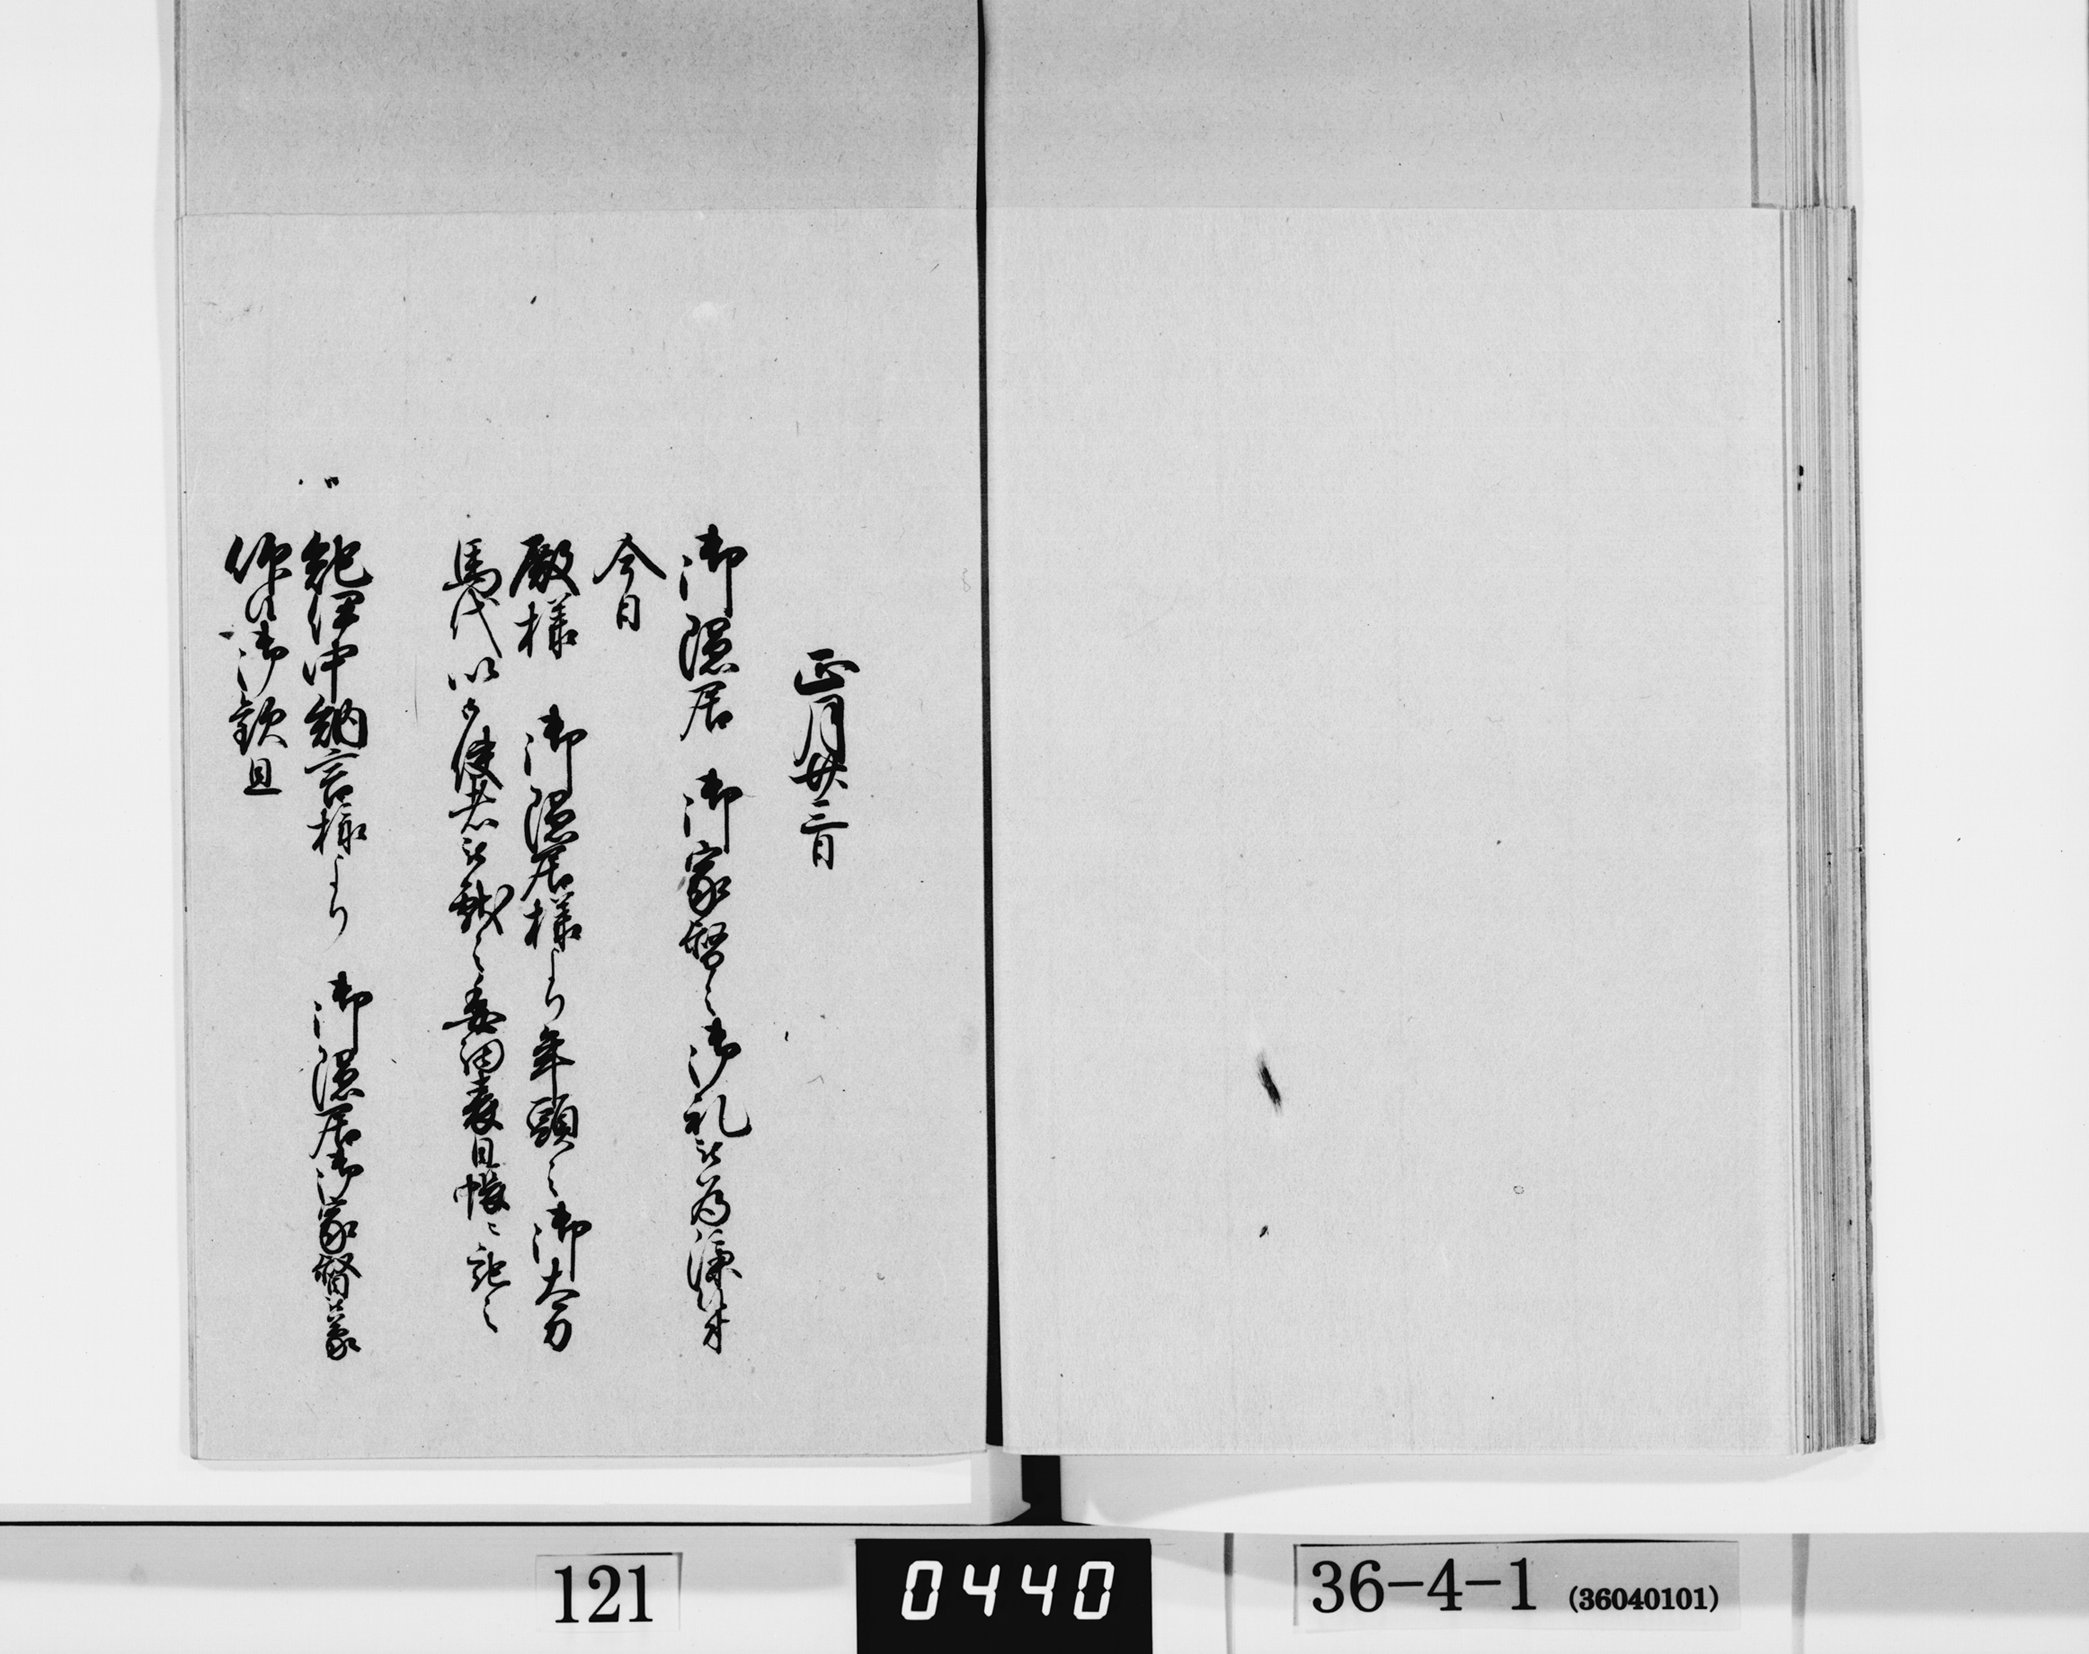 正月廿三日
御隠居 御家督之御礼被為済候付
今日
殿様 御隠居様より年頭之御太刀
馬代以御使者被献之委細表日帳ニ記之
紀伊中納言様より 御隠居御家督為
御歓
121
0440
36-4-1 (36040101)